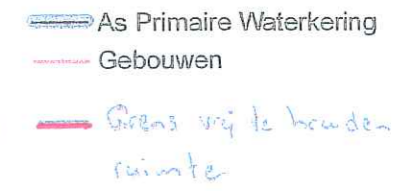 As Primaire Waterkering
Gebouwen
Grens vrij te houden
ruimte